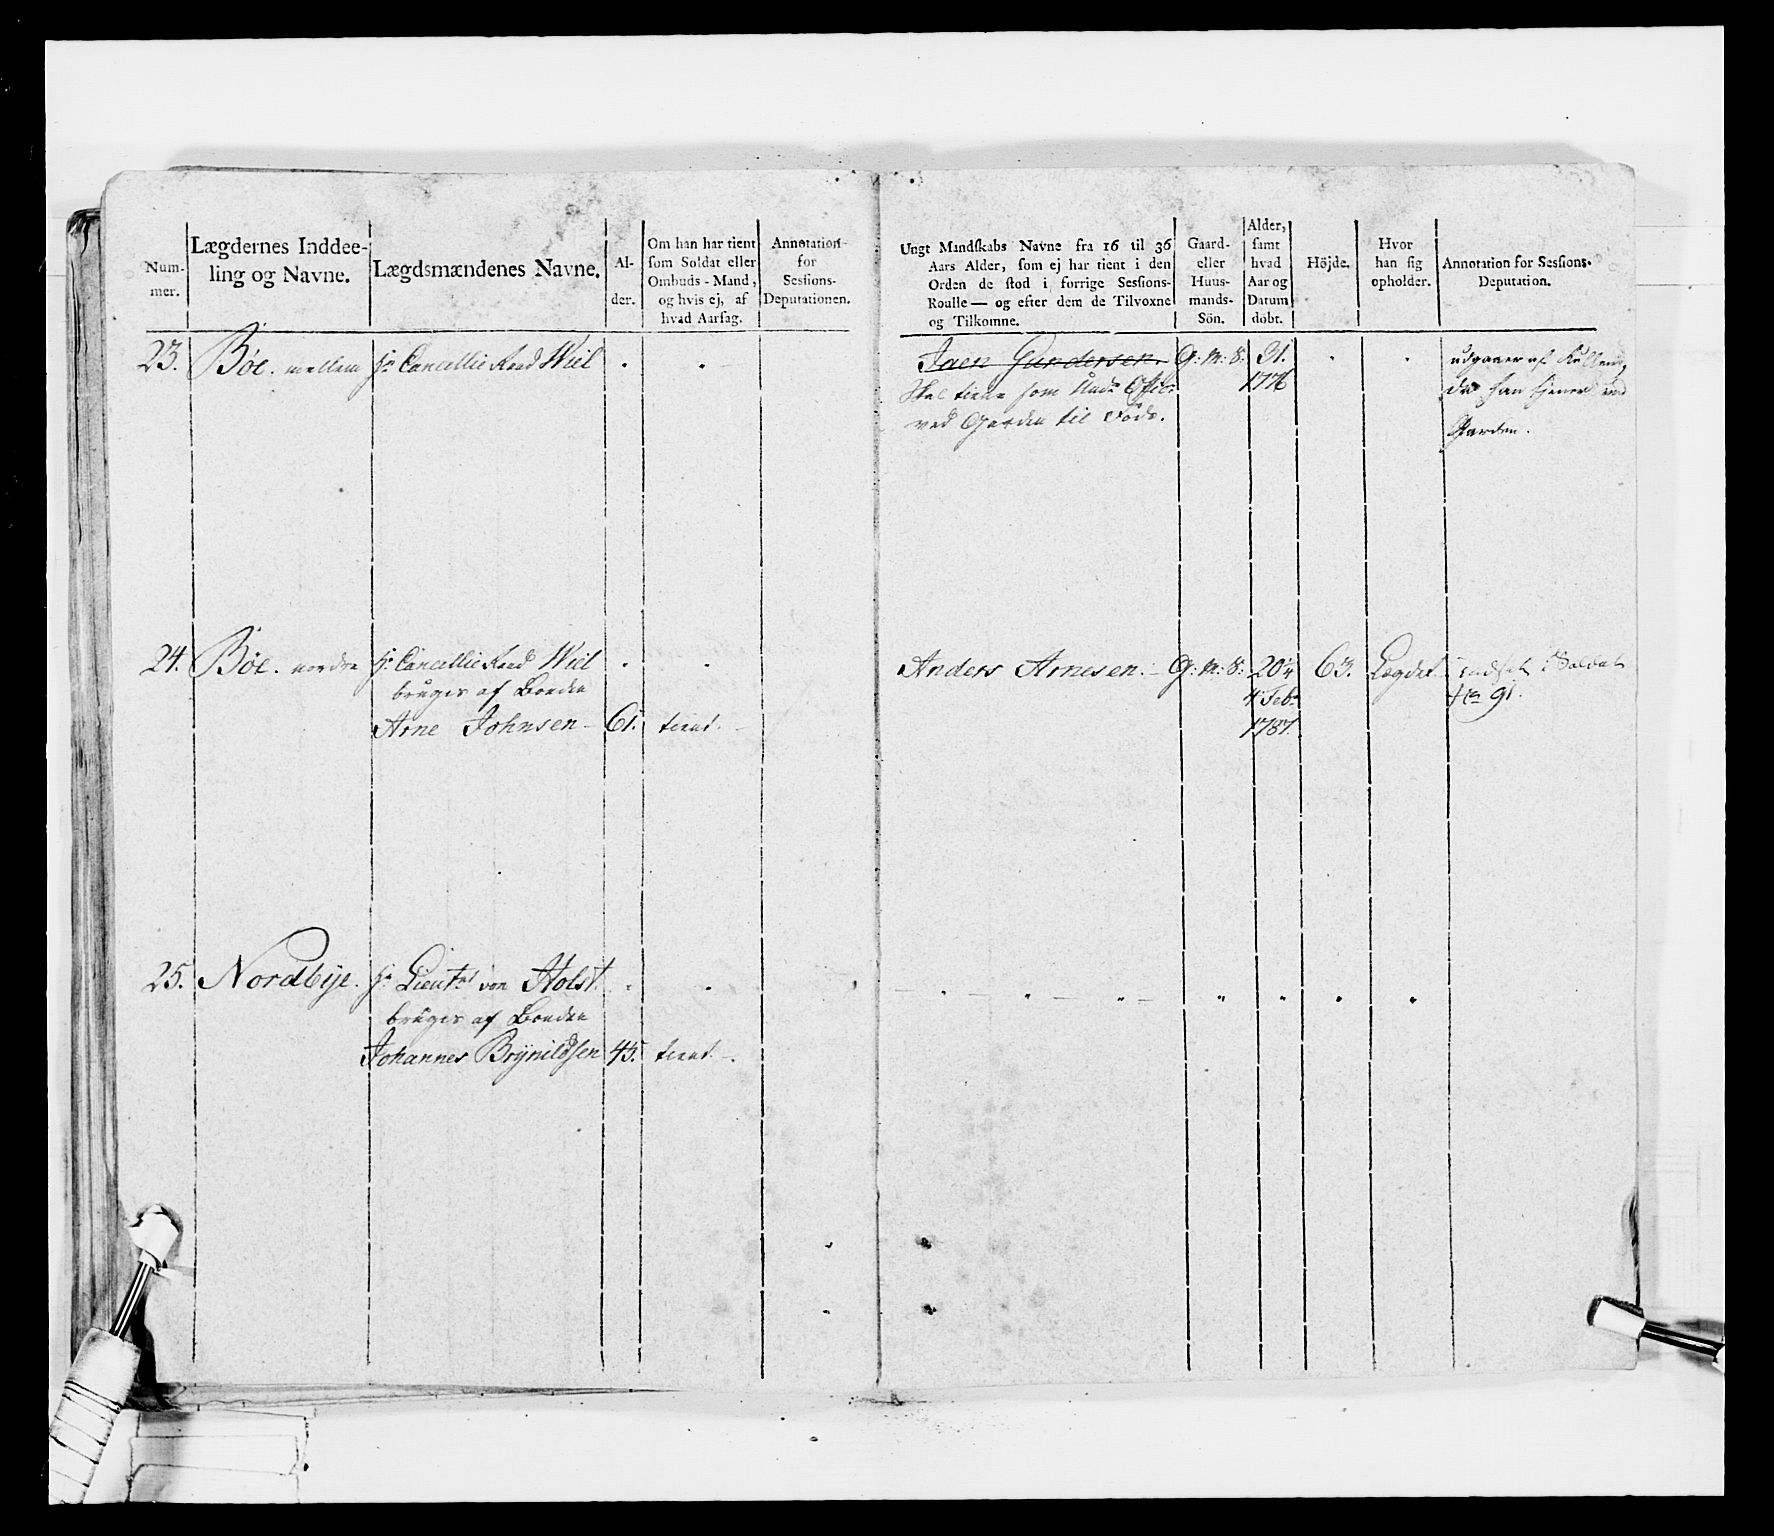 Num-
mer.
Lægdernes Inddee-
ling og Navne.
Lægdsmændenes Navne.
Al-
der.
Om han har tient
som Soldat eller
Ombuds-Mand,
og hvis ej, af
hvad Aarsag.
Annotation
for
Sessions-
Deputationen.
Ungt Mandskabs Navne fra 16 til 36
Aars Alder, som ej har tient i den
Orden de stod i forrige Sessions-
Roulle — og efter dem de Tilvoxne
og Tilkomne.
Gaard-
eller
Huus-
mands-
Sön.
Alder,
samt
hvad
Aar og
Datum
döbt.
Höjde.
Hvor
han sig
opholder.
Annotation for Sessions-
Deputation.
23. Bøe. mellem Hr Cancellie Raad Wiel
Jaen Gundersen. G: M: S: 31.
1776
Skal tiene som Undr Offic:
ved Garden til Fods.
udgaaer af Rullen,
da han tjener ved
Garden.
24. Bøe. nordre Hr Cancellie Raad Wiel
bruges af Bonden
Arne Johnsen – 61. tient. –
Anders Arnesen. – G: M: S: 20¼ 63. Lægdet. indsat i Soldat
4 Febr No 91.
1787.
25. Nordbye. Hr Lieutnt von Holst.
bruges af Bonden
Johannes Brynildsen 45. tient –.